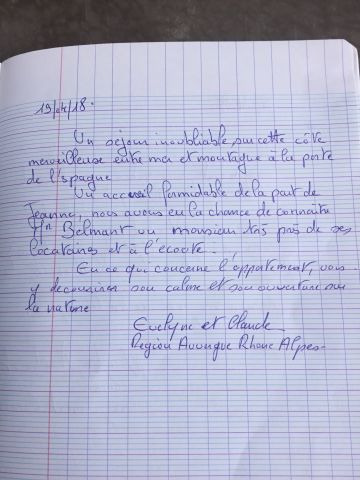 19/04/18.
Un séjour inoubliable sur cette côte
merveilleuse entre mer et montagne à la porte
de l'Espagne
Un accueil formidable de la part de
Jeanne, nous avons eu la chance de connaitre
Mr Belmant un monsieur très près de ses
locataires et à l'écoute.
En ce qui concerne l'appartement, vous
y decouvrirez son calme et son ouverture sur
la nature
Evelyne et Claude
Région Auvergne Rhone Alpes